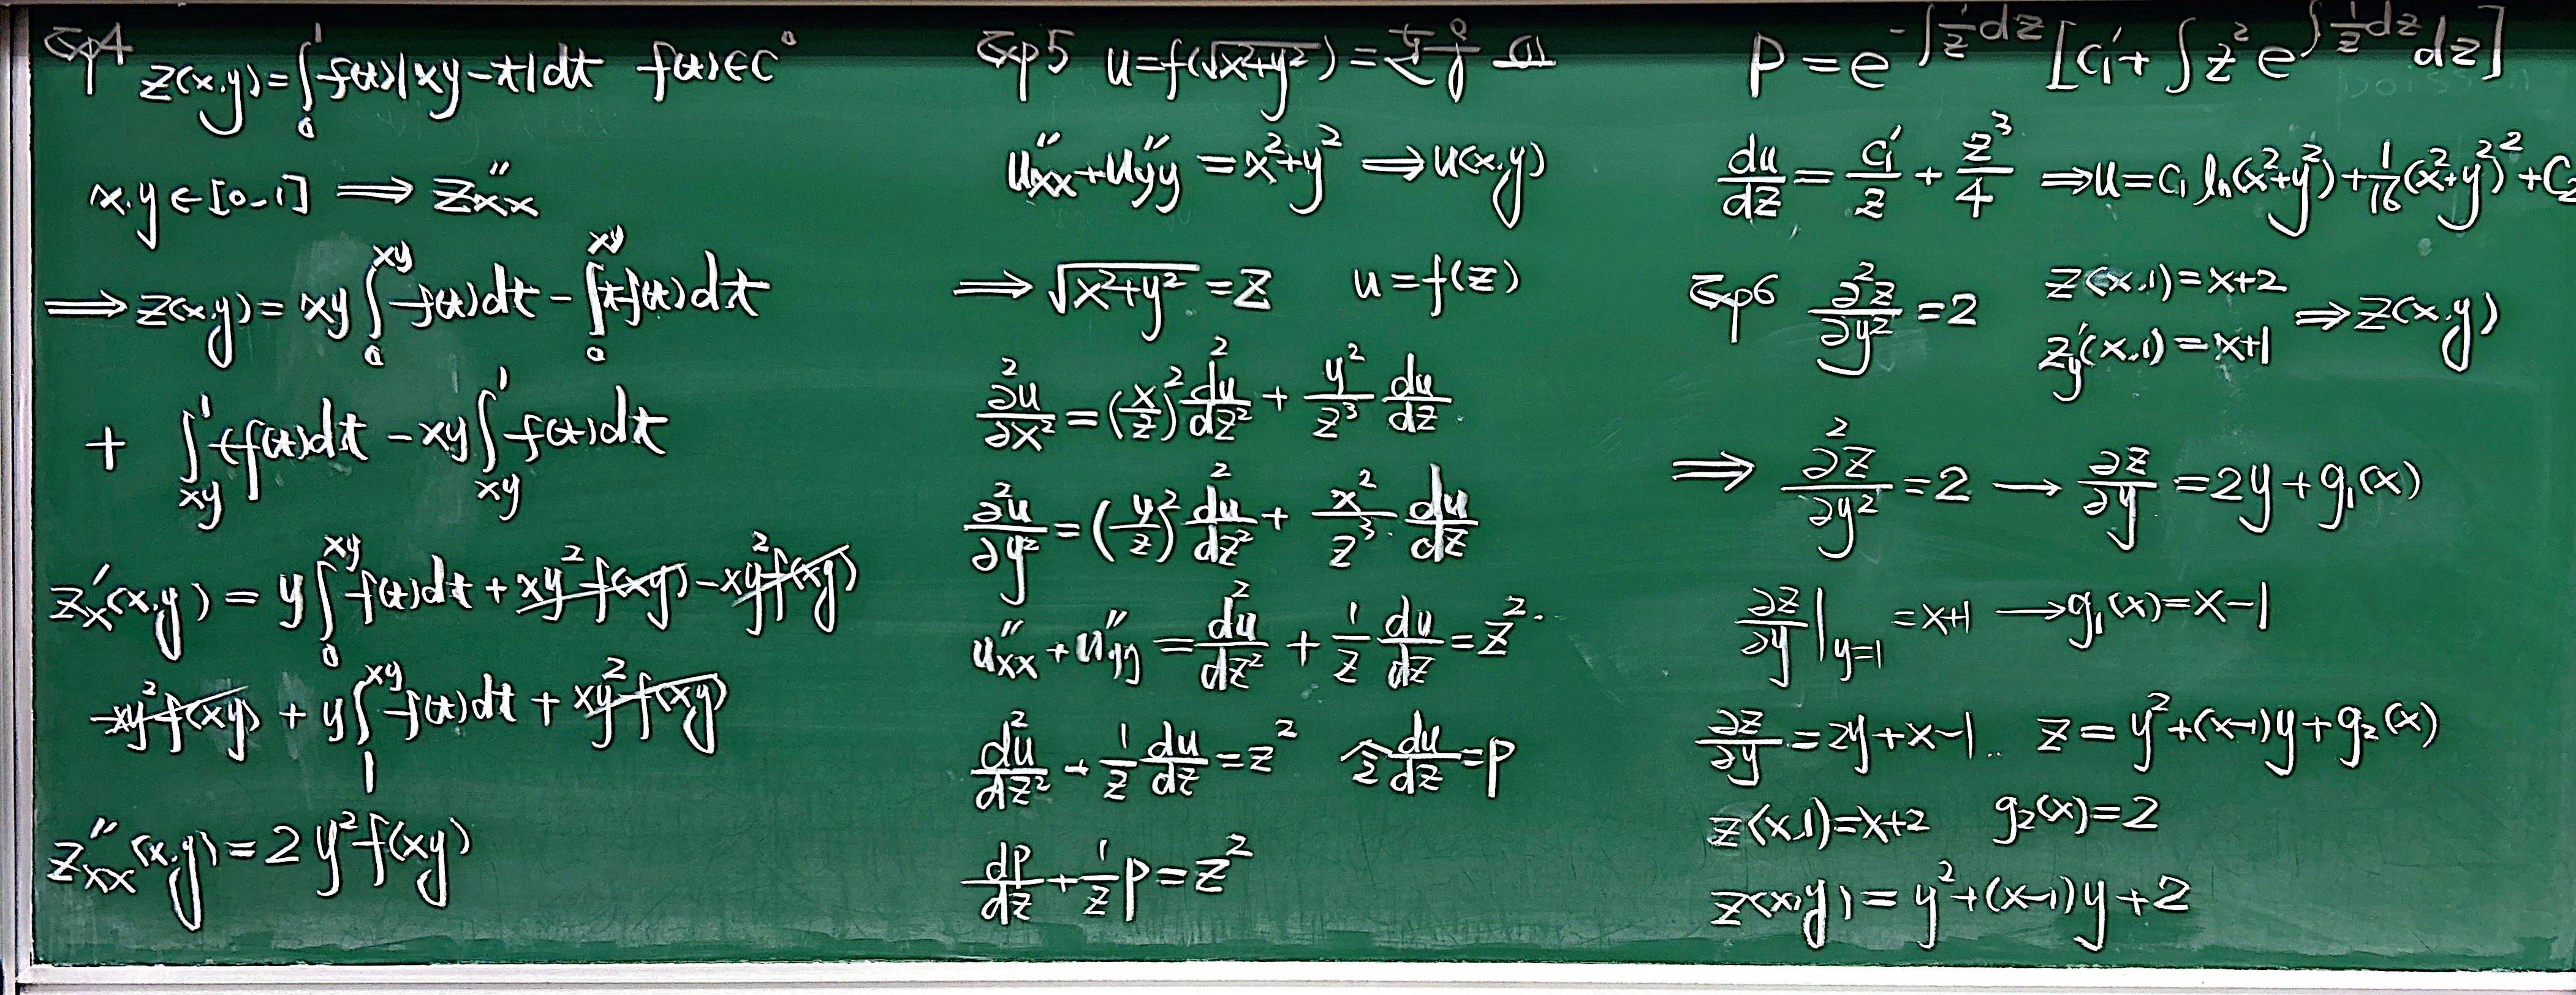 Exp4 z(x,y)=∫₀¹f(t)|xy-t|dt f(t)∈C⁰
x,y∈[0,1] ⟹ z''ₓₓ
⟹ z(x,y)=xy∫₀^{xy}f(t)dt-∫₀^{xy}tf(t)dt
+ ∫_{xy}^1 tf(t)dt-xy∫_{xy}^1 f(t)dt
z'ₓ(x,y)=y∫₀^{xy}f(t)dt+xy²f(xy)-xy²f(xy)
-xy²f(xy)+y∫₁^{xy}f(t)dt+xy²f(xy)
z''ₓₓ(x,y)=2y²f(xy)
Exp5 u=f(√(x²+y²))=
u''ₓₓ+u''_{yy}=x²+y² ⟹ u(x,y)
⟹ √(x²+y²)=z u=f(z)
∂²u/∂x²=(x/z)²d²u/dz²+y²/z³ du/dz
∂²u/∂y²=(y/z)²d²u/dz²+x²/z³ du/dz
u''ₓₓ+u''_{yy}=d²u/dz²+1/z du/dz=z²
d²u/dz²+1/z du/dz=z² du/dz=p
dp/dz+1/z p=z²
P=e^{-∫1/z dz}[c₁'+∫z²e^{∫1/z dz}dz]
du/dz=c₁'/z+z³/4 ⟹ u=c₁ln(x²+y²)+1/16(x²+y²)²+C₂
Exp6 ∂²z/∂y²=2 z(x,1)=x+2
z'_y(x,1)=x+1 ⟹ z(x,y)
⟹ ∂²z/∂y²=2 → ∂z/∂y=2y+g₁(x)
∂z/∂y|_{y=1}=x+1 → g₁(x)=x-1
∂z/∂y=2y+x-1.. z=y²+(x-1)y+g₂(x)
z(x,1)=x+2 g₂(x)=2
z(x,y)=y²+(x-1)y+2